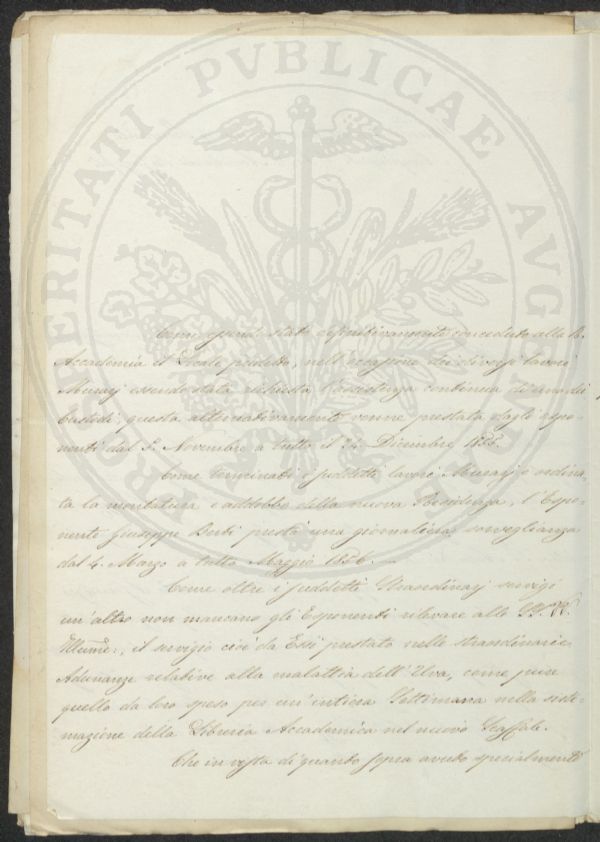 PROSPERITATI PVBLICAE AVGENDAE
Come essendo stato definitivamente conceduto alla R.
Accademia il Locale predetto, nell'occasione dei diversi lavori
Murarj essendo stata richiesta l'assistenza continua di uno dei
Custodi, questa alternativamente venne prestata dagli espo-
nenti dal P. Novembre a tutto il 24. Dicembre 1855.
Come terminati i suddetti lavori Murarj e ordina-
ta la montatura e addobbo della nuova Residenza, l'Espo-
nente Giuseppe prestò una giornaliera sorveglianza
dal 4. Marzo a tutto Maggio 1856.
Come oltre i suddetti Straordinarj servigi
un'altro non mancano gli Esponenti rilevare alle VV.
Illume:, il servigio cioè da Essi prestato nelle straordinarie
Adunanze relative alla malattia dell'Uva, come pure
quello da loro speso per un'intiera Settimana nella siste-
mazione della Libreria Accademica nel nuovo Scaffale.
Che in vista di quando sopra avuto specialmente